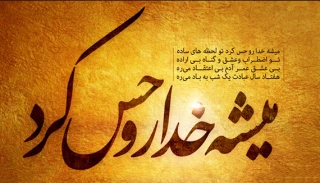 میشه خدا رو حس کرد تو لحظه های ساده
تو اضطراب و عشق و گناه بی اراده
بی عشق عمر آدم بی اعتقاد میره
هفتاد سال عبادت یک شب به باد میره
میشه خدا رو حس کرد